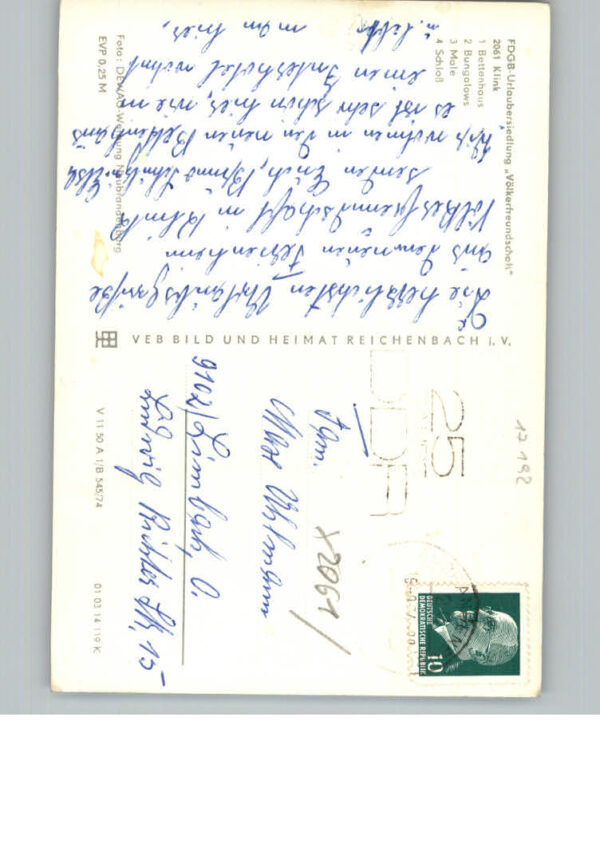 FDGB-Urlaubersiedlung „Völkerfreundschaft"
2061 Klink
1 Bettenhaus
2 Bungalows
3 Mole
4 Schloß
Foto: DEWAG-Werbung Neubrandenburg
EVP 0,25 M
Die herzlichsten Urlaubsgrüße
aus dem neuen Ferienheim
Völkerfreundschaft in Klink
senden Erich,
Wir wohnen in den neuen Bettenhaus
es ist sehr schön hier, wie in
einen Interhotel wohnt
u. lebt
man hier.
VEB BILD UND HEIMAT REICHENBACH i. V.
25
DDR
Fam.
Max Uhlmann
9102 Limbach, O.
Ludwig Richter Str. 15
X2061
12 192
DEUTSCHE
DEMOKRATISCHE REPUBLIK
10
V 11 50 A 1/B 545/74
01 03 14 119 K